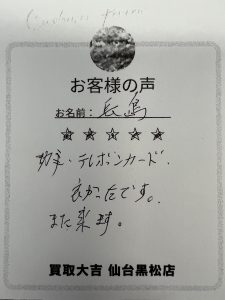 お客様の声
お名前: 長島
☆☆☆☆☆
切手・テレホンカード.
良かったです。
また来ます。
買取大吉 仙台黒松店